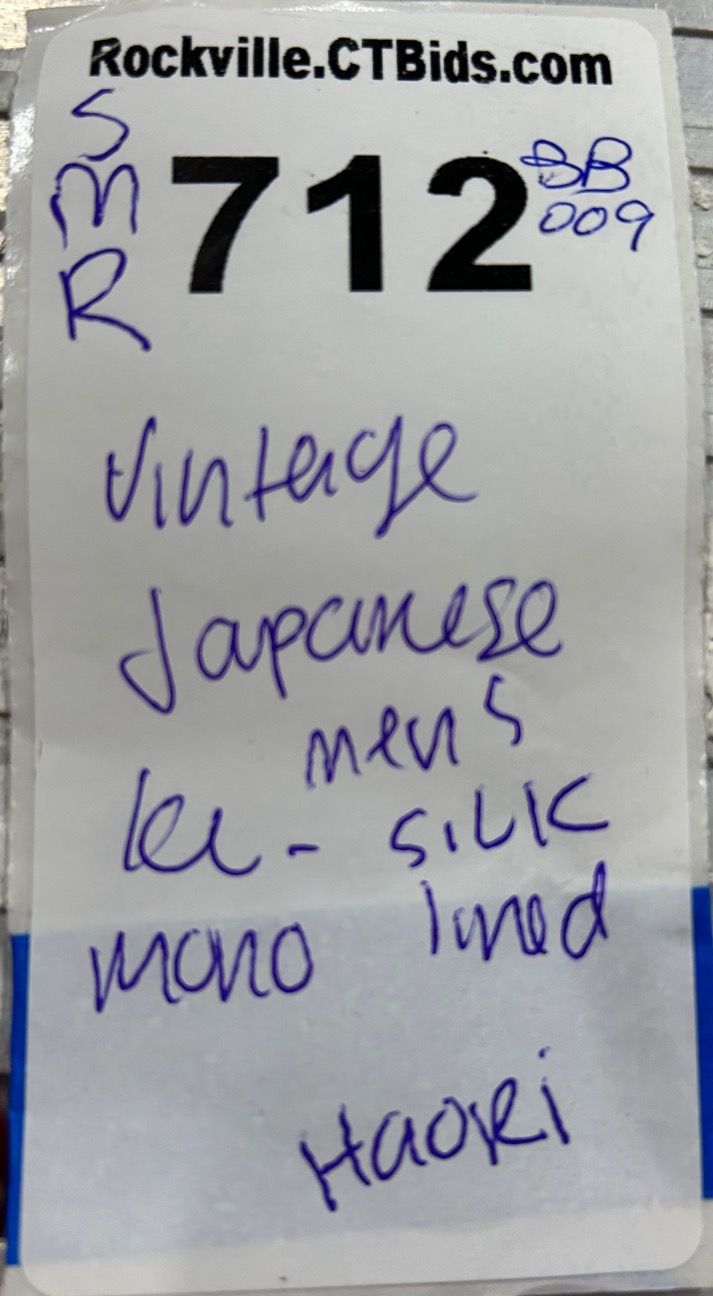 Rockville.CTBids.com
S
M
R
712
BB
009
Vintage
Japanese
men's
Ki- SILK
mono lined
Haori